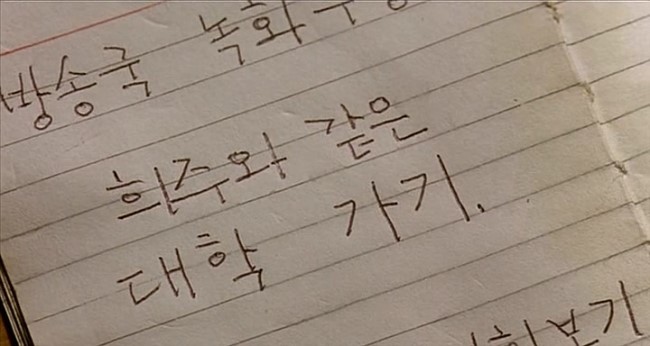 방송국 녹화
희주와 같은
대학 가기.
보기